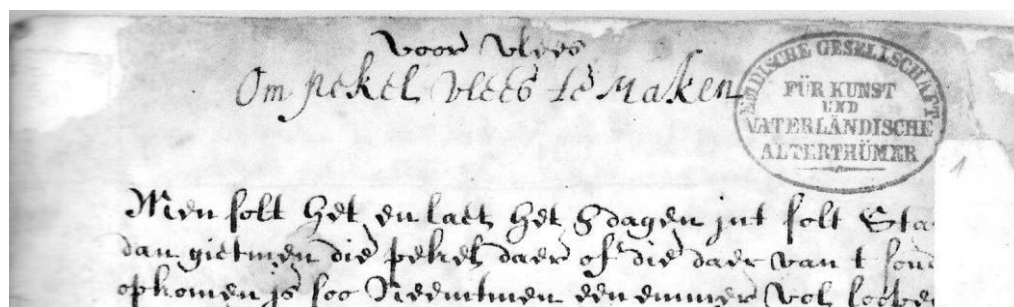 Voor Vlees
Om pekel vlees te Maken
EMDISCHE GESELLSCHAFT
FÜR KUNST
UND
VATERLÄNDISCHE
ALTERTHÜMER
1
Men solt het en laet het 8 dagen int solt Sta
dan gietmen die pekel daer of die daer van t sou
opkomen is soo Neemtmen een emmer vol